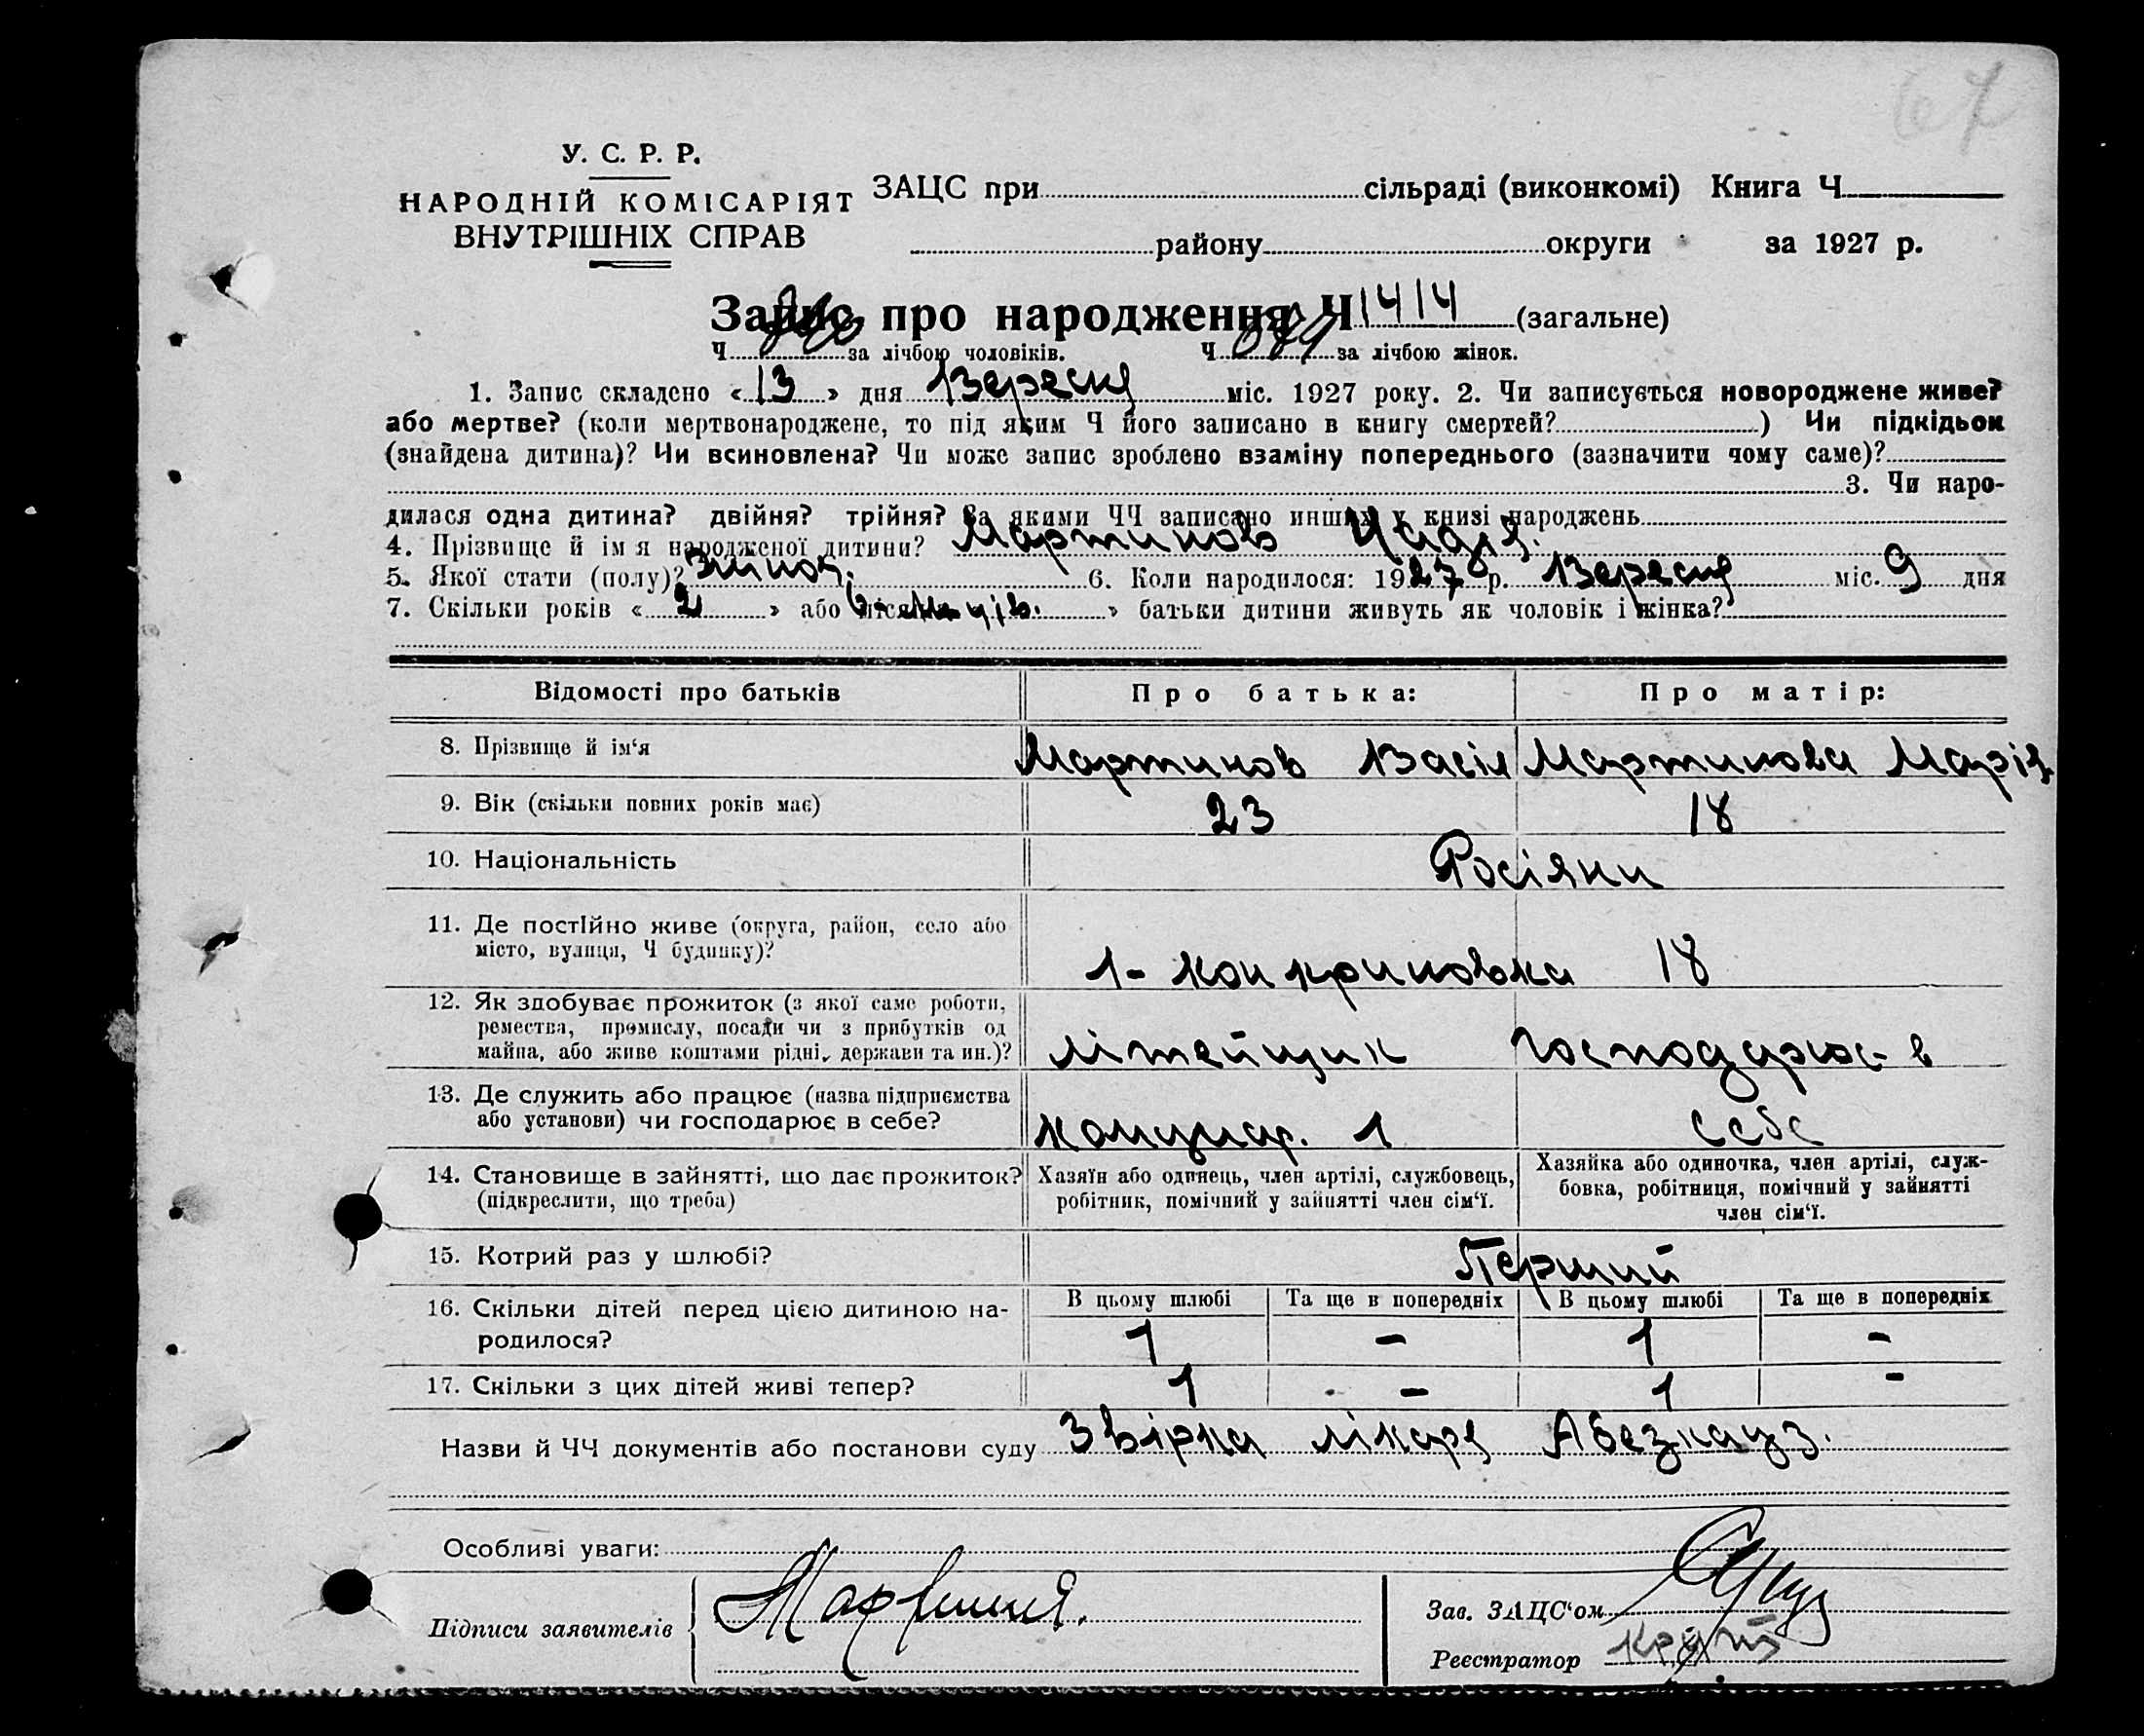 67
У. С. Р. Р.
НАРОДНІЙ КОМІСАРІЯТ
ВНУТРІШНІХ СПРАВ
ЗАЦС при сільраді (виконкомі) Книга Ч
району округи за 1927 р.
Запис про народження Ч 1414 (загальне)
Ч за лічбою чоловіків. Ч за лічбою жінок.
1. Запис складено « 13 » дня Вересня міс. 1927 року. 2. Чи записується новороджене живе?
або мертве? (коли мертвонароджене, то під яким Ч його записано в книгу смертей? ) Чи підкідьок
(знайдена дитина)? Чи всиновлена? Чи може запис зроблено взаміну попереднього (зазначити чому саме)?
3. Чи наро-
дилася одна дитина? двійня? трійня? За якими ЧЧ записано инших у книзі народжень
4. Прізвище й ім я народженої дитини? Мартинов Надія.
5. Якої стати (полу)? жіноч. 6. Коли народилося: 1927 р. Вересня міс. 9 дня
7. Скільки років « 2 » або » батьки дитини живуть як чоловік і жінка?
Відомості про батьків
Про батька:
Про матір:
8. Прізвище й ім'я Мартинов Васіл Мартинова Марія
9. Вік (скільки повних років має) 23 18
10. Національність Росіяни
11. Де постійно живе (округа, район, село або
місто, вулиця, Ч будинку)? 1- 18
12. Як здобуває прожиток (з якої саме роботи,
ремества, промислу, посади чи з прибутків од
майна, або живе коштами рідні, держави та ин.)? літейщик господарює в
13. Де служить або працює (назва підприємства
або установи) чи господарює в себе? комунар. 1 себе
14. Становище в зайнятті, що дає прожиток?
(підкреслити, що треба)
Хазяїн або одинець, член артілі, службовець,
робітник, помічний у зайнятті член сім'ї.
Хазяйка або одиночка, член артілі, служ-
бовка, робітниця, помічний у зайнятті
член сім'ї.
15. Котрий раз у шлюбі? Перший
В цьому шлюбі Та ще в попередніх В цьому шлюбі Та ще в попередніх
16. Скільки дітей перед цією дитиною на-
родилося? 1 - 1 -
17. Скільки з цих дітей живі тепер? 1 - 1 -
Назви й ЧЧ документів або постанови суду Звірка лікаря Абезгауз.
Особливі уваги:
Підписи заявителів
Зав. ЗАЦС'ом
Реєстратор